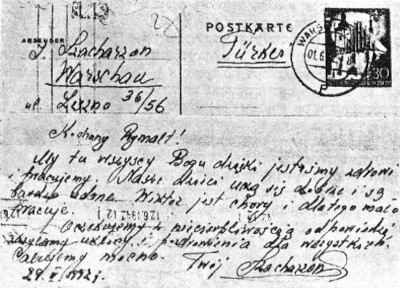 22
POSTKARTE
ABSENDER
J. Szacharzon
Türkei
Warschau
ul. Leszno 36/56
30
Kochany Rymalt!
My tu wszyscy Bogu dzięki jesteśmy zdrowi
i pracujemy. Nasze dzieci uczą się dobrze i są
bardzo udane. Wiktor jest chory i dlatego mało
pracuje.
Oczekujemy z niecierpliwością odpowiedzi
zasyłamy ukłony i pozdrowienia dla wszystkich.
Całujemy mocno.
Twój Szacharzon